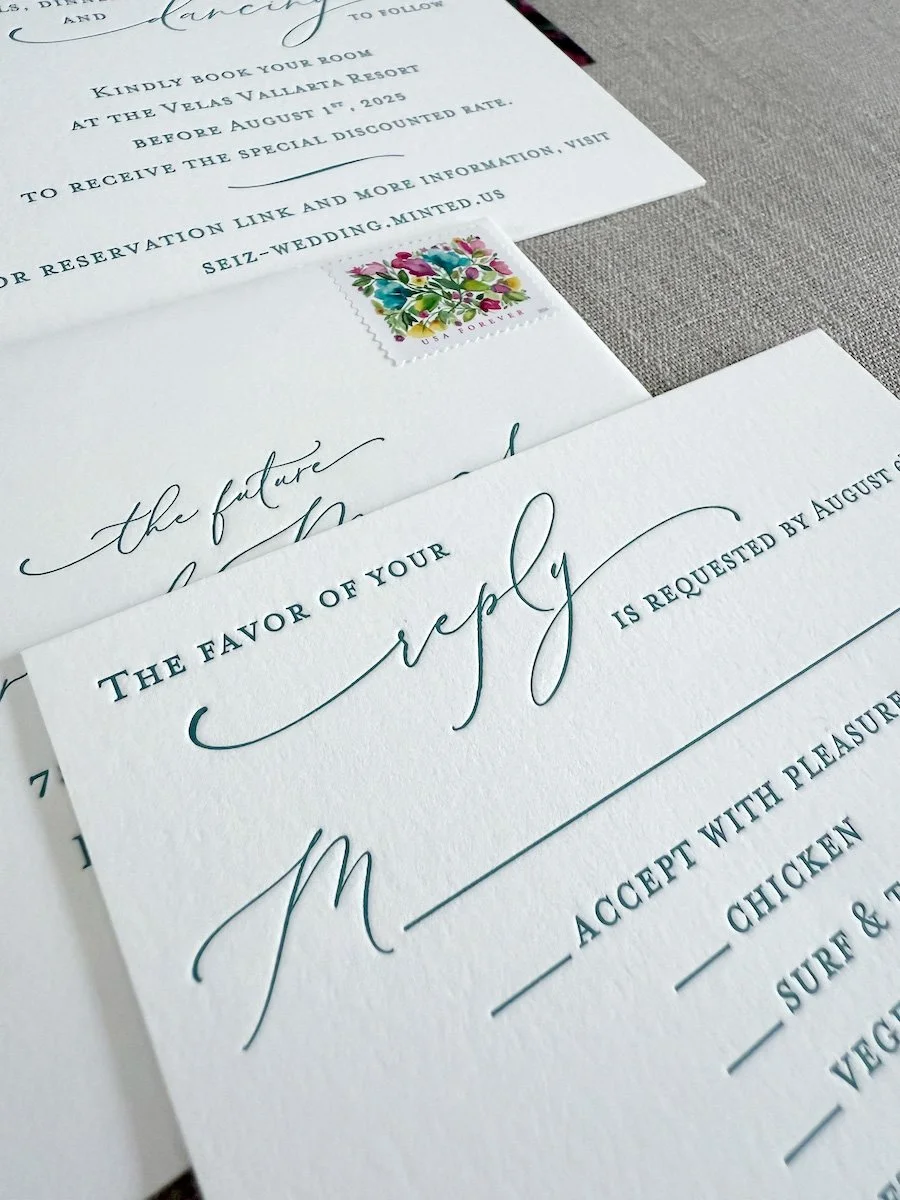 AND dancing TO FOLLOW
KINDLY BOOK YOUR ROOM
AT THE VELAS VALLARTA RESORT
BEFORE AUGUST 1ST, 2025
TO RECEIVE THE SPECIAL DISCOUNTED RATE.
RESERVATION LINK AND MORE INFORMATION, VISIT
SEIZ-WEDDING.MINTED.US
USA FOREVER
the future
THE FAVOR OF YOUR reply IS REQUESTED BY AUGUST
M
ACCEPT WITH PLEASURE
CHICKEN
SURF &